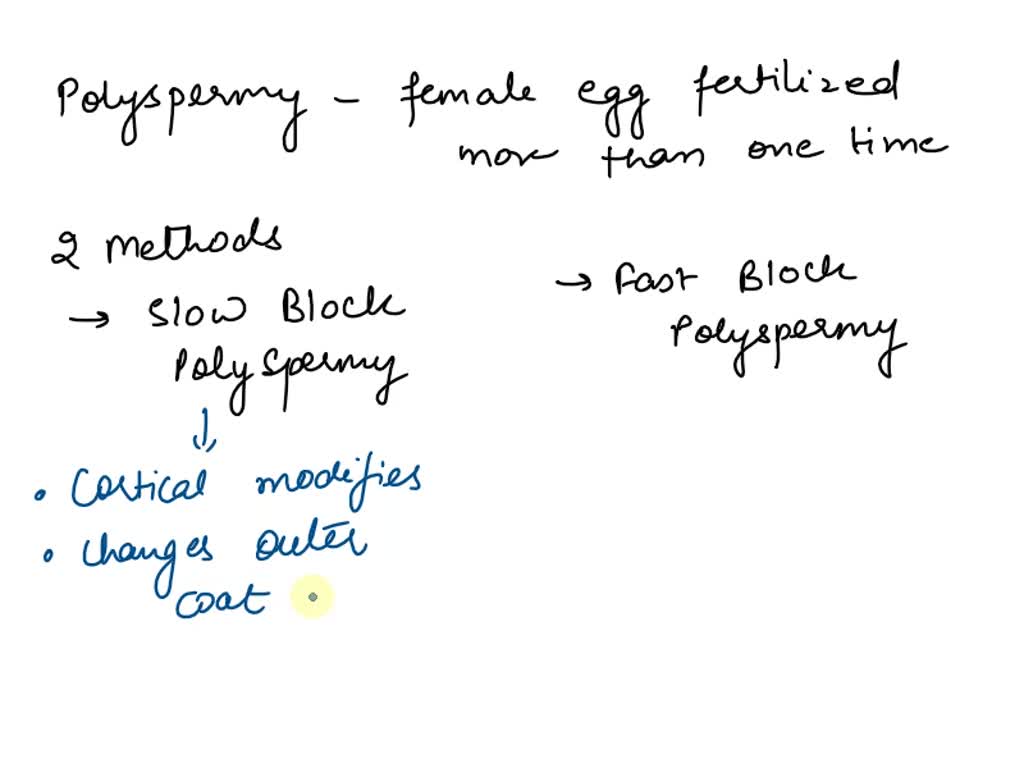 Polyspermy - female egg fertilized
more than one time
2 methods
→ Slow Block
Polyspermy
→ Fast Block
Polyspermy
• Cortical modifies
• changes outer
coat